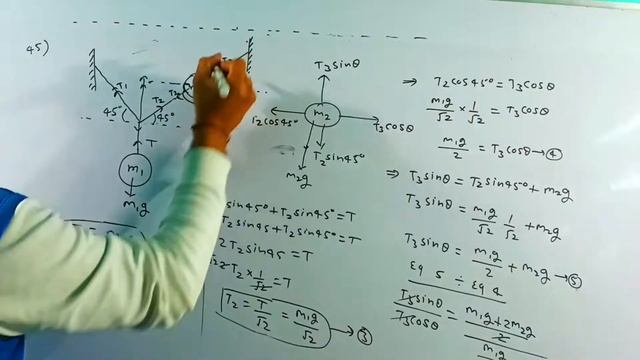 45)
T₁
T₂
T₂
45° 45°
T
m₁
m₁g
T₃sinθ
m₂
T₂cos45°
T₃cosθ
T₂sin45°
m₂g
sin45°+T₂sin45°=T
T₂sin45+T₂sin45°=T
2T₂sin45=T
T₂ × 1/√2 = T
T₂ = T/√2 = m₁g/√2 → ③
⇒ T₂cos45° = T₃cosθ
m₁g/√2 × 1/√2 = T₃cosθ
m₁g/2 = T₃cosθ → ④
⇒ T₃sinθ = T₂sin45°+m₂g
T₃sinθ = m₁g/√2 1/√2 + m₂g
T₃sinθ = m₁g/2 + m₂g → ⑤
Eq 5 ÷ Eq 4
T₃sinθ/T₃cosθ = m₁g+2m₂g/2
m₁g